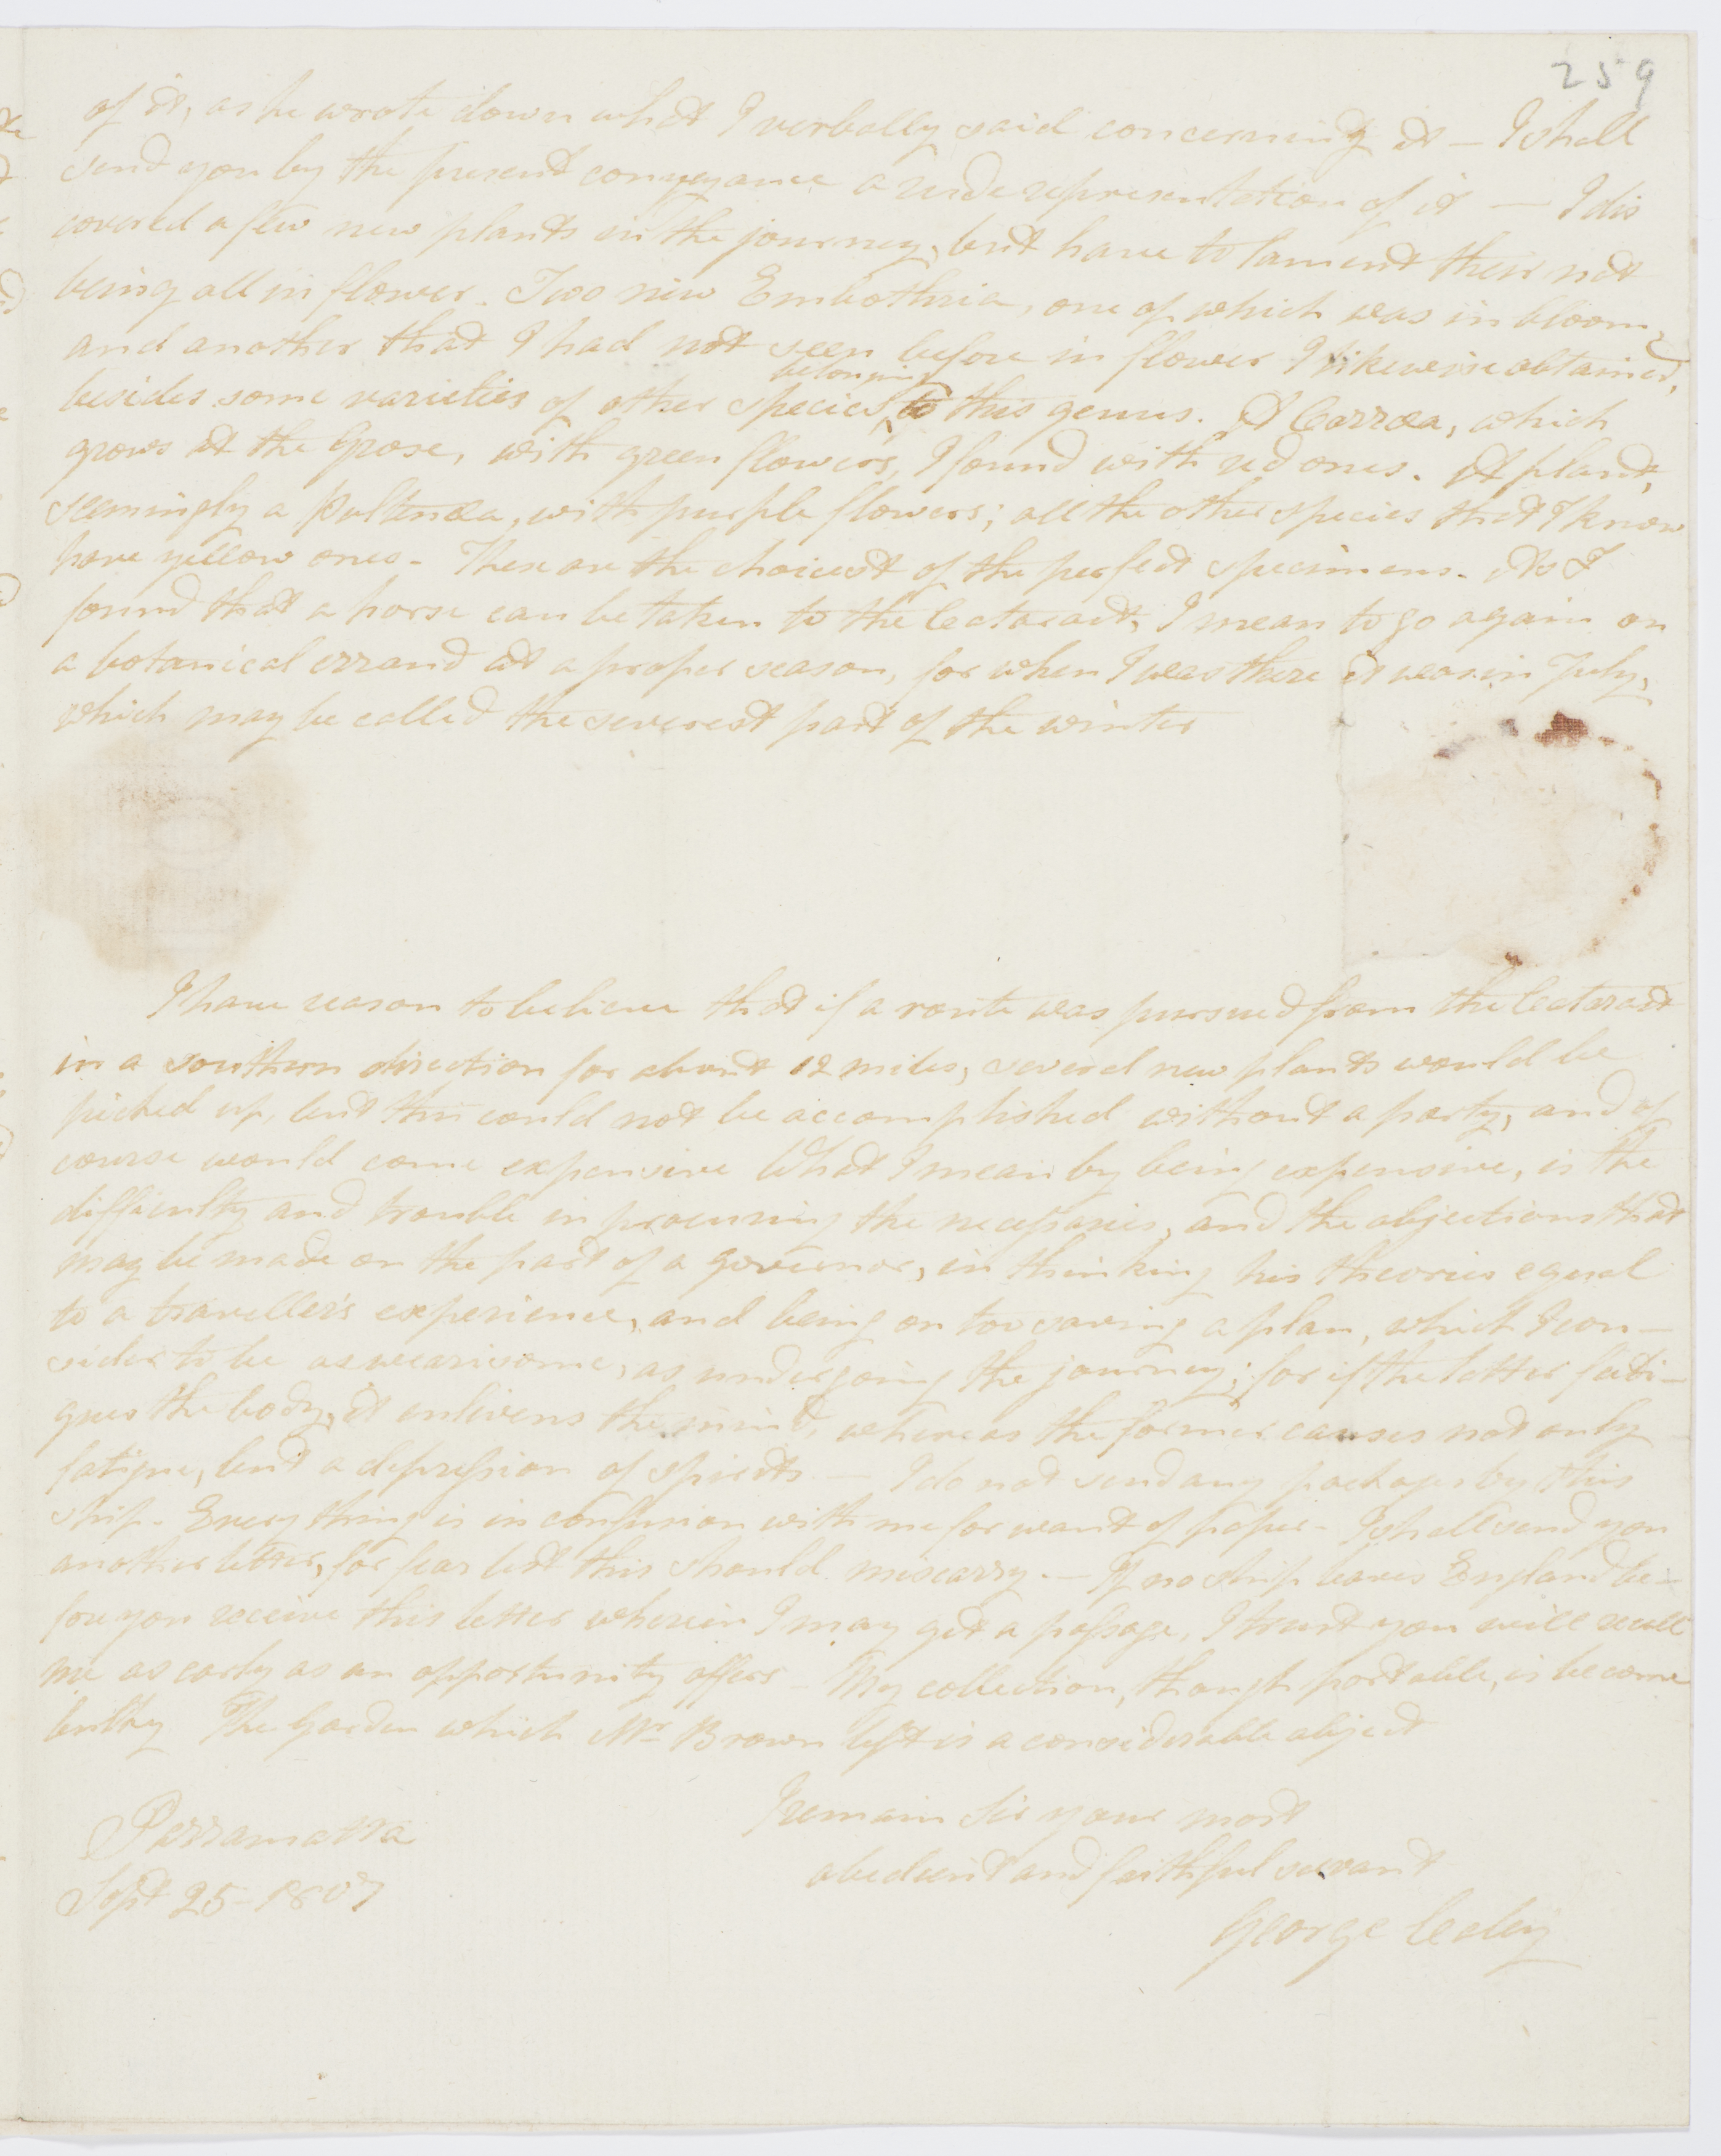 259
of it, as he wrote down what I verbally said concerning it — I shall
send you by the present conveyance a rude representation of it — I dis
covered a few new plants in the journey, but have to lament their not
being all in flower. Two new Embothria, one of which was in bloom,
and another that I had not seen before in flower I likewise obtained,
besides some varieties of other species belonging to this genus. A Corræa, which
grows at the Grose, with green flowers, I found with red ones. A plant,
seemingly a Pultenæa, with purple flowers; all the other species that I know
have yellow ones - These are the choicest of the perfect specimens. As I
found that a horse can be taken to the Cataract, I mean to go again on
a botanical errand at a proper season, for when I was there it was in July,
which may be called the severest part of the winter
I have reason to believe that if a route was pursued from the Cataract
in a southern direction for about 12 miles, several new plants would be
picked up, but this could not be accomplished without a party, and of
course would come expensive What I mean by being expensive, is the
difficulty and trouble in procuring the necessaries, and the objections that
may be made on the part of a governor, in thinking his theories equal
to a traveller's experience, and being on too saving a plan, which I con-
sider to be as wearisome, as undergoing the journey; for if the latter fati-
gues the body, it enlivens the mind, whereas the former causes not only
fatigue, but a depression of spirits — I do not send any packages by this
ship - Every thing is in confusion with me for want of paper - I shall send you
another letter, for fear lest this should miscarry. — If no ship leaves England be-
fore you receive this letter wherein I may get a passage, I trust you will recall
me as early as an opportunity offers - My collection, though portable, is become
bulky The Garden which Mr Brown left is a considerable object
I remain Sir your most
obedient and faithful servant
George Caley
Parramatta
Sept 25 - 1807